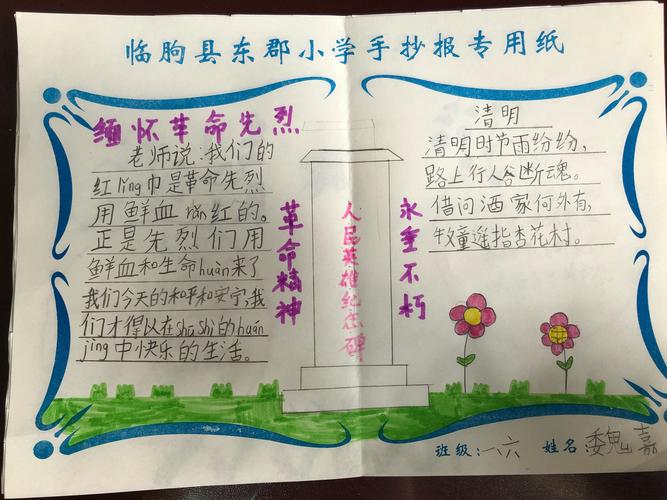 临朐县东郡小学手抄报专用纸
缅怀革命先烈
老师说:我们的
红lǐng巾是革命先烈
用鲜血 红的。
正是先烈们用
鲜血和生命huàn来了
我们今天的和平和安宁,我
们才得以在shū shì的huán
jìng中快乐的生活。
革命精神
人民英雄纪念碑
永垂不朽
清明
清明时节雨纷纷,
路上行人 断魂。
借问酒家何外有,
牧童遥指杏花村。
班级:一、六 姓名:魏嘉